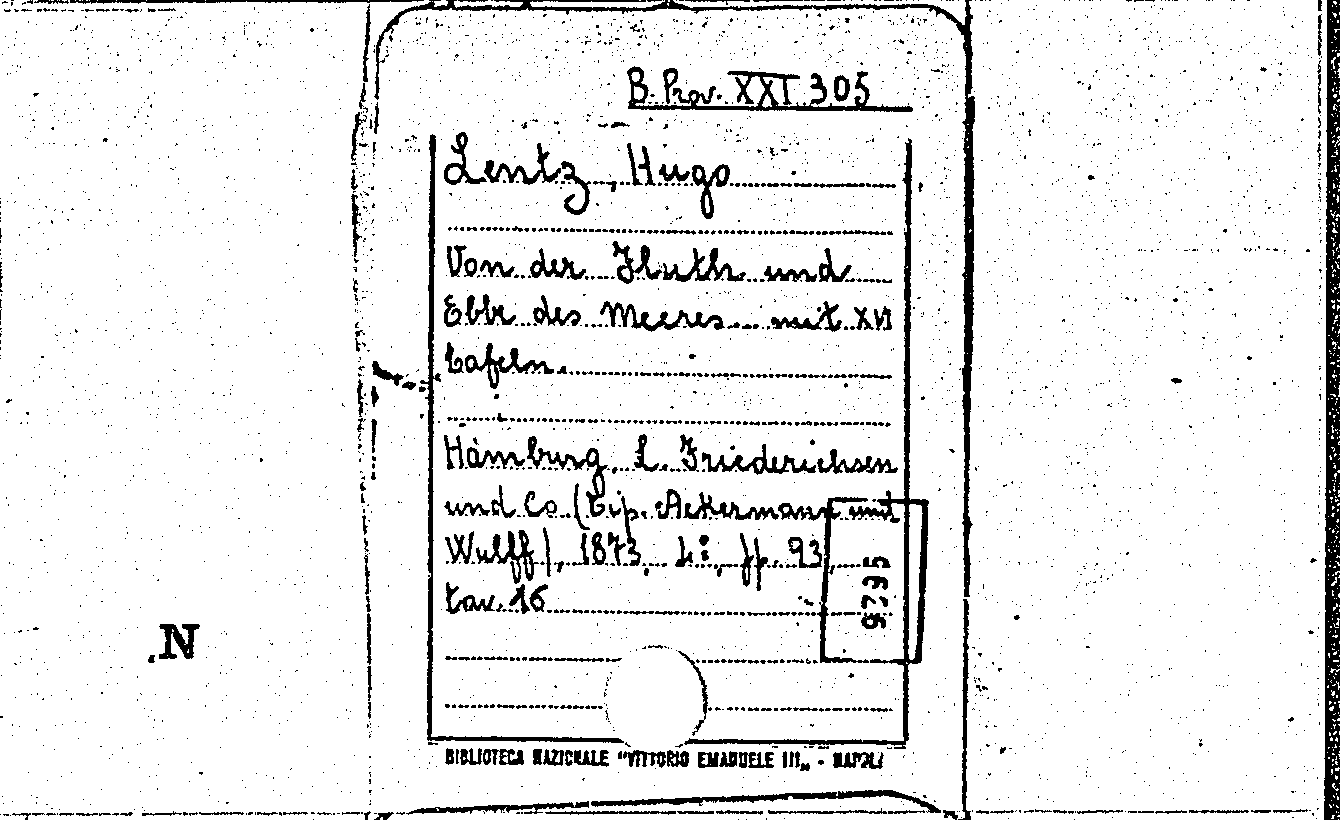 B. Prov. XXI 305
Lentz, Hugo
Von der Fluth und
Ebbe des Meeres... mit XVI
tafeln.
Hamburg, L. Friederichsen
und Co (tip. Ackermann und
Wulff), 1873, 4°, pp. 93,
tav. 16
N
BIBLIOTECA NAZIONALE "VITTORIO EMANUELE III„ - NAPOLI